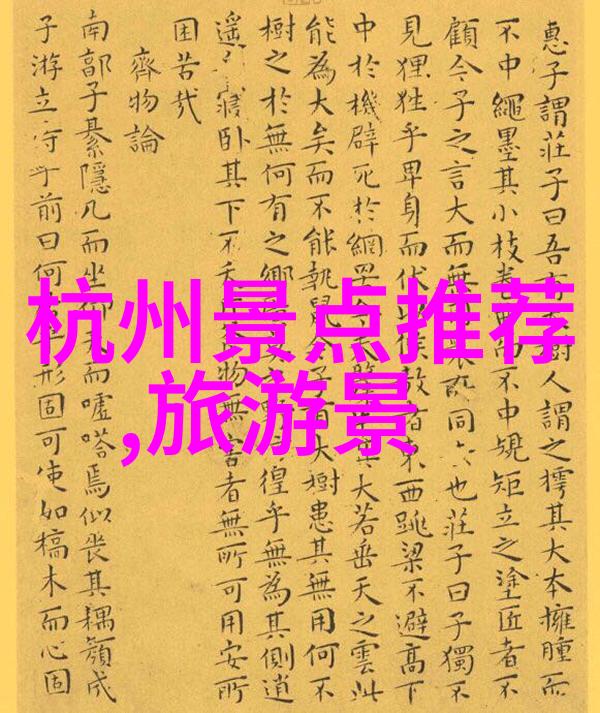 杭州景点推荐
,旅游景
惠子謂莊子曰吾樹人謂之樗其大本擁腫而
不中繩墨其小枝卷不中規矩立之塗匠者不
顧今子之言大而無同也莊子曰子獨不
見狸狌乎卑身而伏以候敖者東西跳梁不避高下
中於機辟死於網罟今大若垂天之雲此
能為大矣而不能執鼠今子有大樹患其無用何不
樹之於無何有之鄉徨乎無為其側逍
遙寢卧其下不物無害者無所可用安所
困苦哉
齊物論
南郭子綦隱几而坐仰而噓嗒焉似喪其耦顏成
子游立侍乎前曰何形固可使如槁木而心固